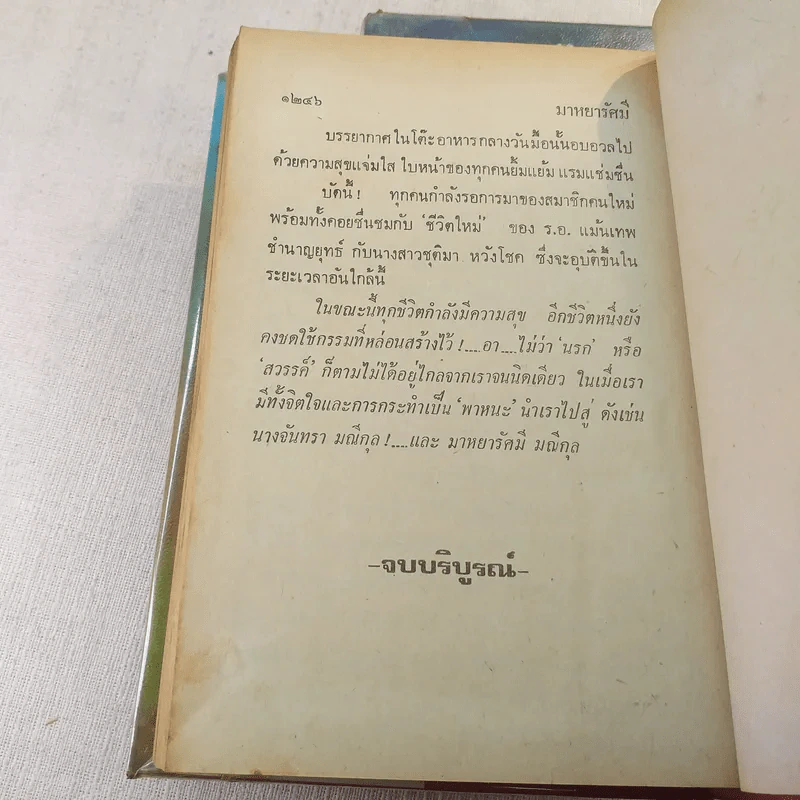 ๑๒๔๖
มาหยารัศมี
บรรยากาศในโต๊ะอาหารกลางวันมื้อนั้นอบอวลไป
ด้วยความสุขแจ่มใส ใบหน้าของทุกคนยิ้มแย้ม แรมแช่มชื่น
บัดนี้ ! ทุกคนกำลังรอการมาของสมาชิกคนใหม่
พร้อมทั้งคอยชื่นชมกับ ‘ชีวิตใหม่’ ของ ร.อ. แม้นเทพ
ชำนาญยุทธ์ กับนางสาวชุติมา หวังโชค ซึ่งจะอุบัติขึ้นใน
ระยะเวลาอันใกล้นี้
ในขณะนี้ทุกชีวิตกำลังมีความสุข อีกชีวิตหนึ่งยัง
คงชดใช้กรรมที่หล่อนสร้างไว้ !....อา ....ไม่ว่า ‘นรก’ หรือ
‘สวรรค์’ ก็ตามไม่ได้อยู่ไกลจากเราจนนิดเดียว ในเมื่อเรา
มีทั้งจิตใจและการกระทำเป็น ‘พาหนะ’ นำเราไปสู่ ดังเช่น
นางจันทรา มณีกุล !....และ มาหยารัศมี มณีกุล
–จบบริบูรณ์–